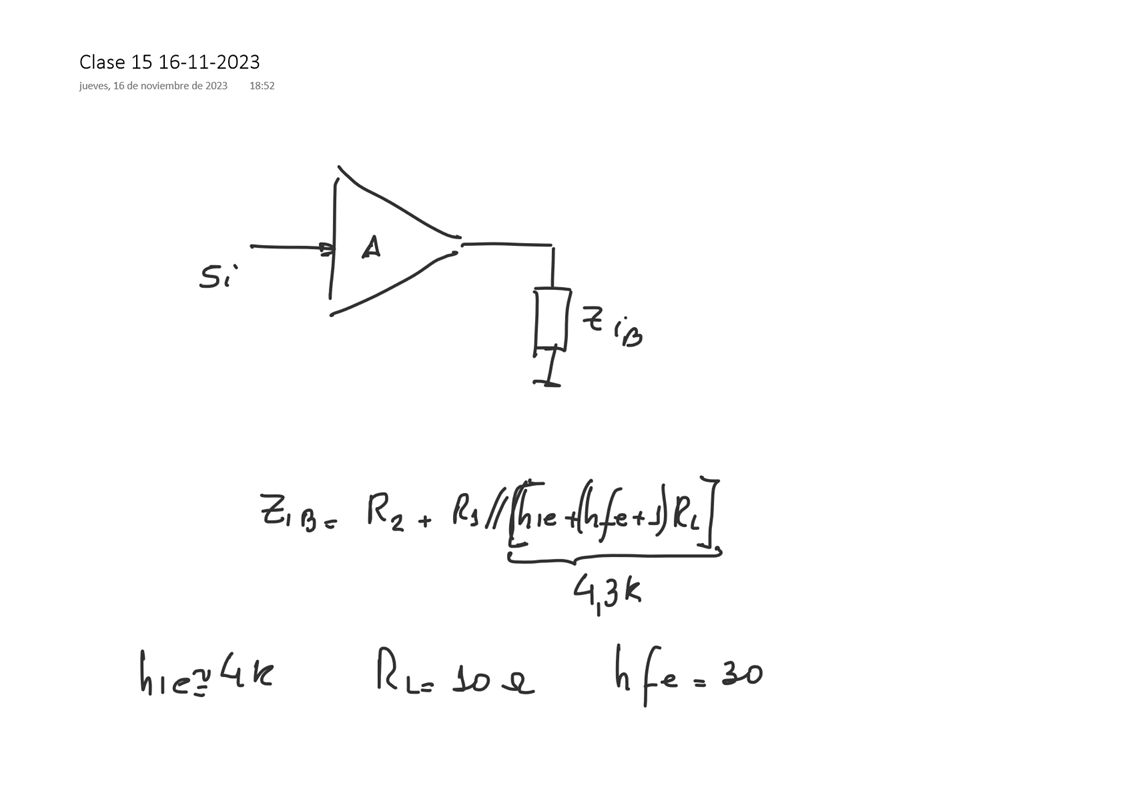 Clase 15 16-11-2023
jueves, 16 de noviembre de 2023 18:52
A
Si
Z iB
ZiB = R2 + R1//[hie+(hfe+1)RL]
4,3k
hie≅4k RL=10Ω hfe=30